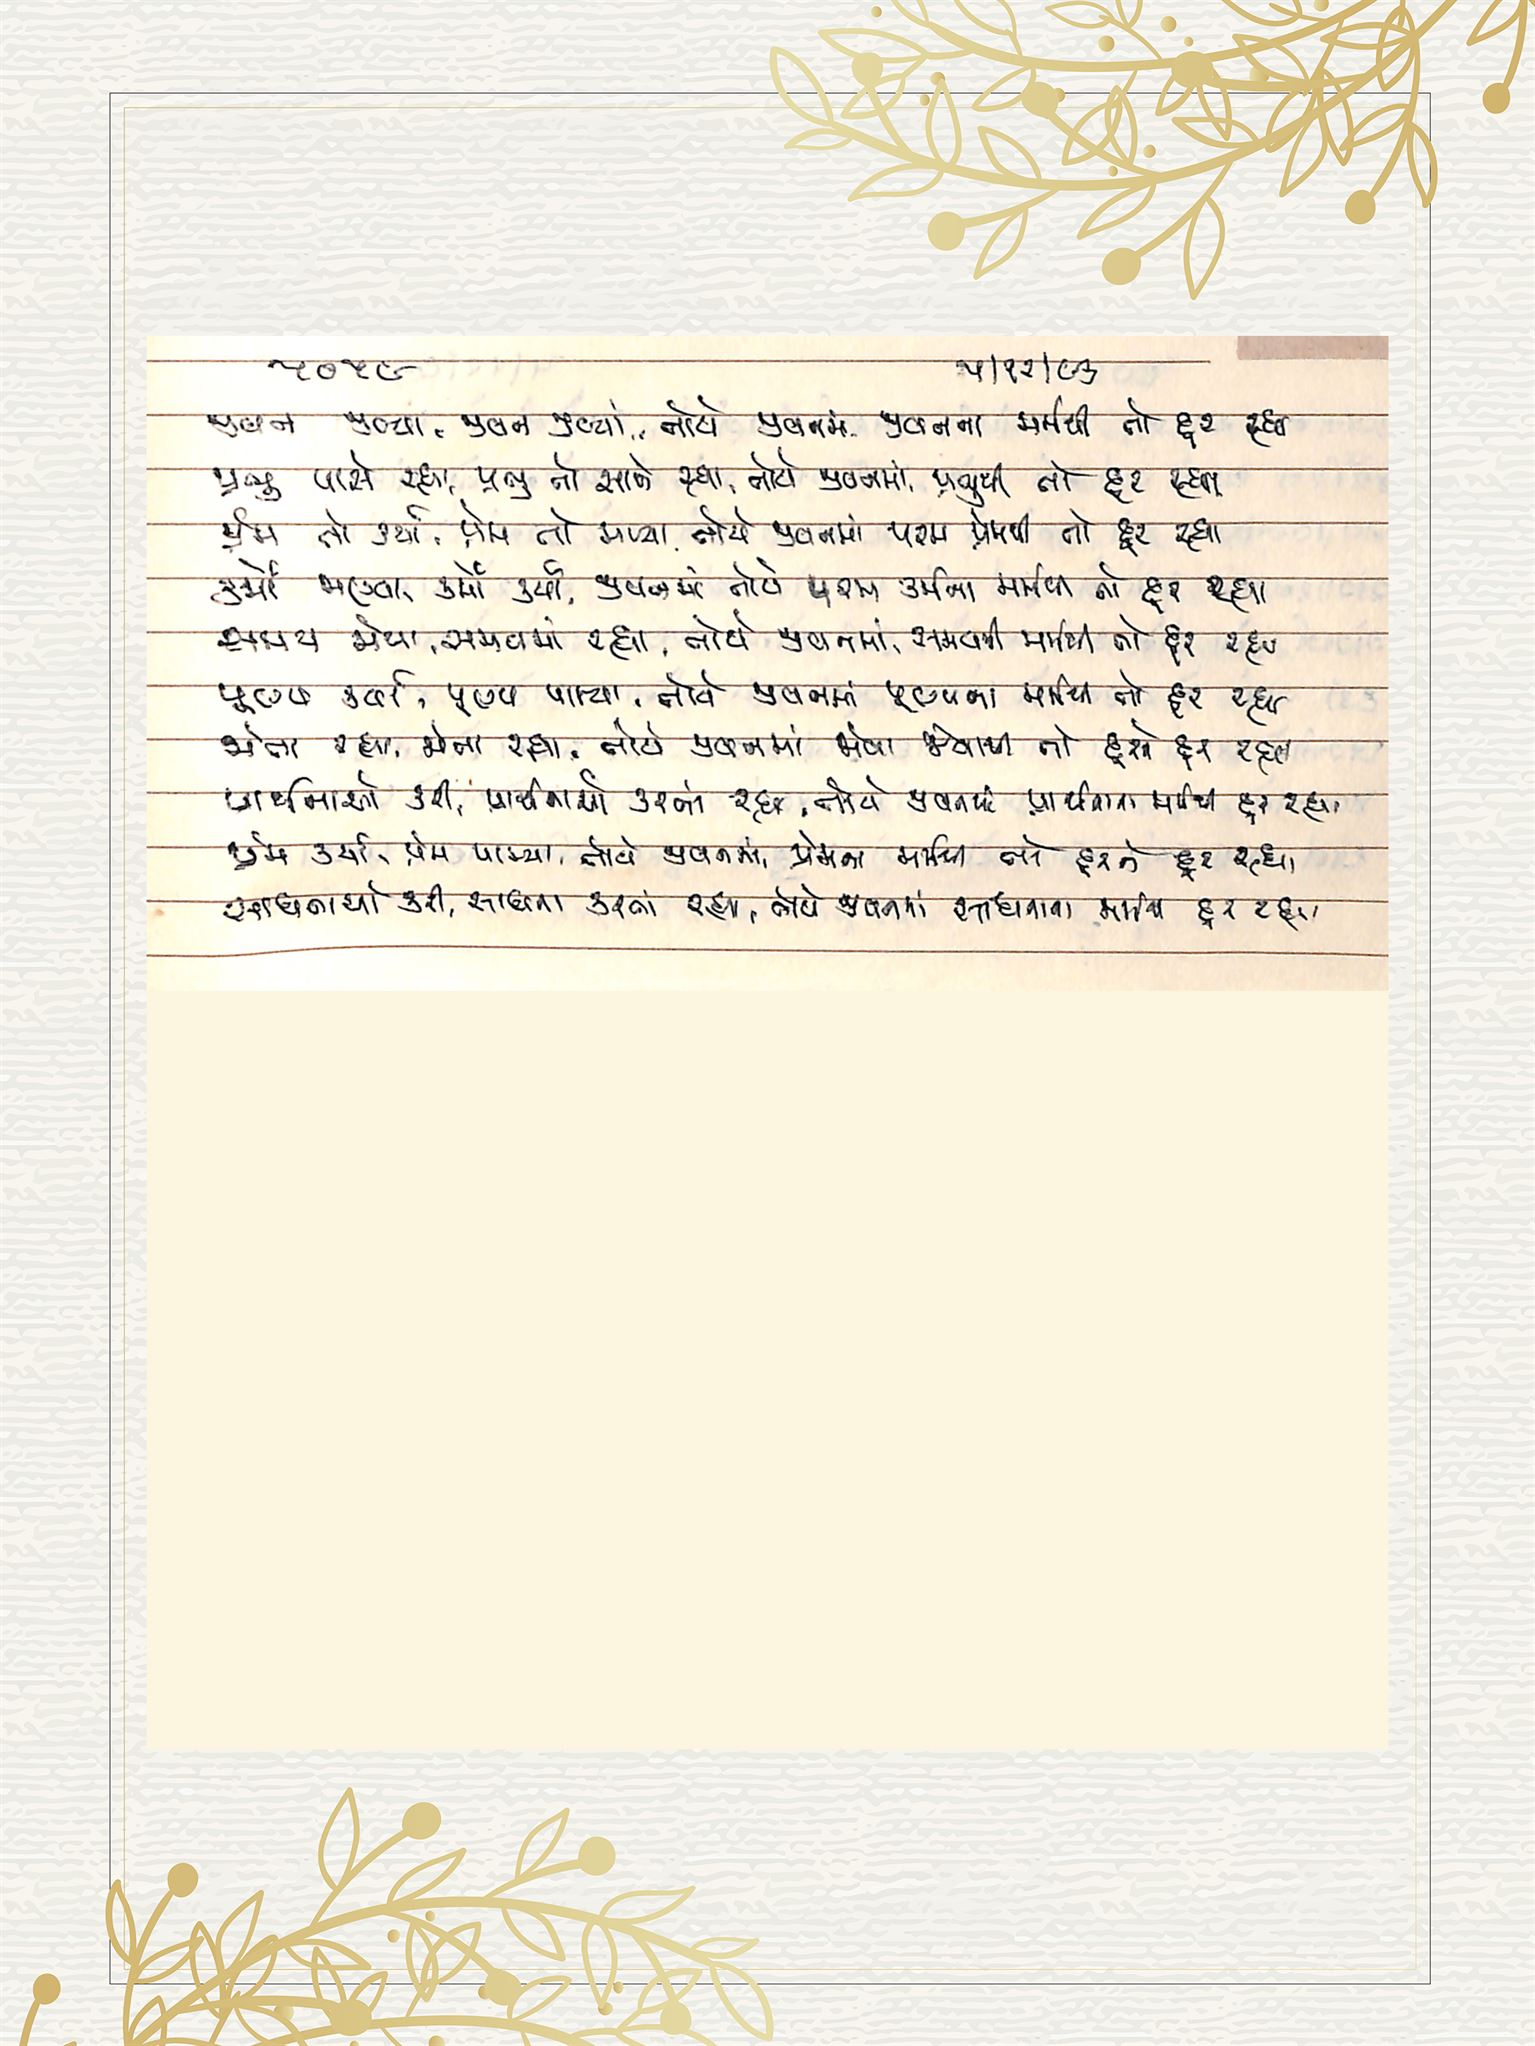 ૫૦૫૯ ૫/૧૨/૯૩
જીવન જીવ્યા, જીવન જીવ્યાં, તોયે જીવનમાં જીવનના મર્મથી તો દૂર રહ્યા
પ્રભુ પાસે રહ્યા, પ્રભુ તો સાથે રહ્યા, તોયે જીવનમાં, પ્રભુથી તો દૂર રહ્યા
પ્રેમ તો કર્યા, પ્રેમ તો મળ્યા, તોયે જીવનમાં પરમ પ્રેમથી તો દૂર રહ્યા
કર્મો કર્યાં, જીવનમાં તોયે પરમ કર્મના મર્મથી તો દૂર રહ્યા
સમય સમયમાં રહ્યા, તોયે જીવનમાં, સમયના મર્મથી તો દૂર રહ્યા
પૂણ્ય કર્યા, પૂણ્ય પામ્યા, તોયે જીવનમાં પૂણ્યના મર્મથી તો દૂર રહ્યા
એના રહ્યા, એના રહ્યા, તોયે જીવનમાં એવા એવાથી તો દૂરને દૂર રહ્યા
પ્રાર્થનાઓ કરી, પ્રાર્થનાઓ કરતાં રહ્યા, તોયે જીવનમાં પ્રાર્થનાના મર્મથી દૂર રહ્યા
પ્રેમ કર્યા, પ્રેમ પામ્યા, તોયે જીવનમાં, પ્રેમના મર્મથી તો દૂરને દૂર રહ્યા
સાધનાઓ કરી, સાધના કરતાં રહ્યા, તોયે જીવનમાં સાધનાના મર્મથી દૂર રહ્યા